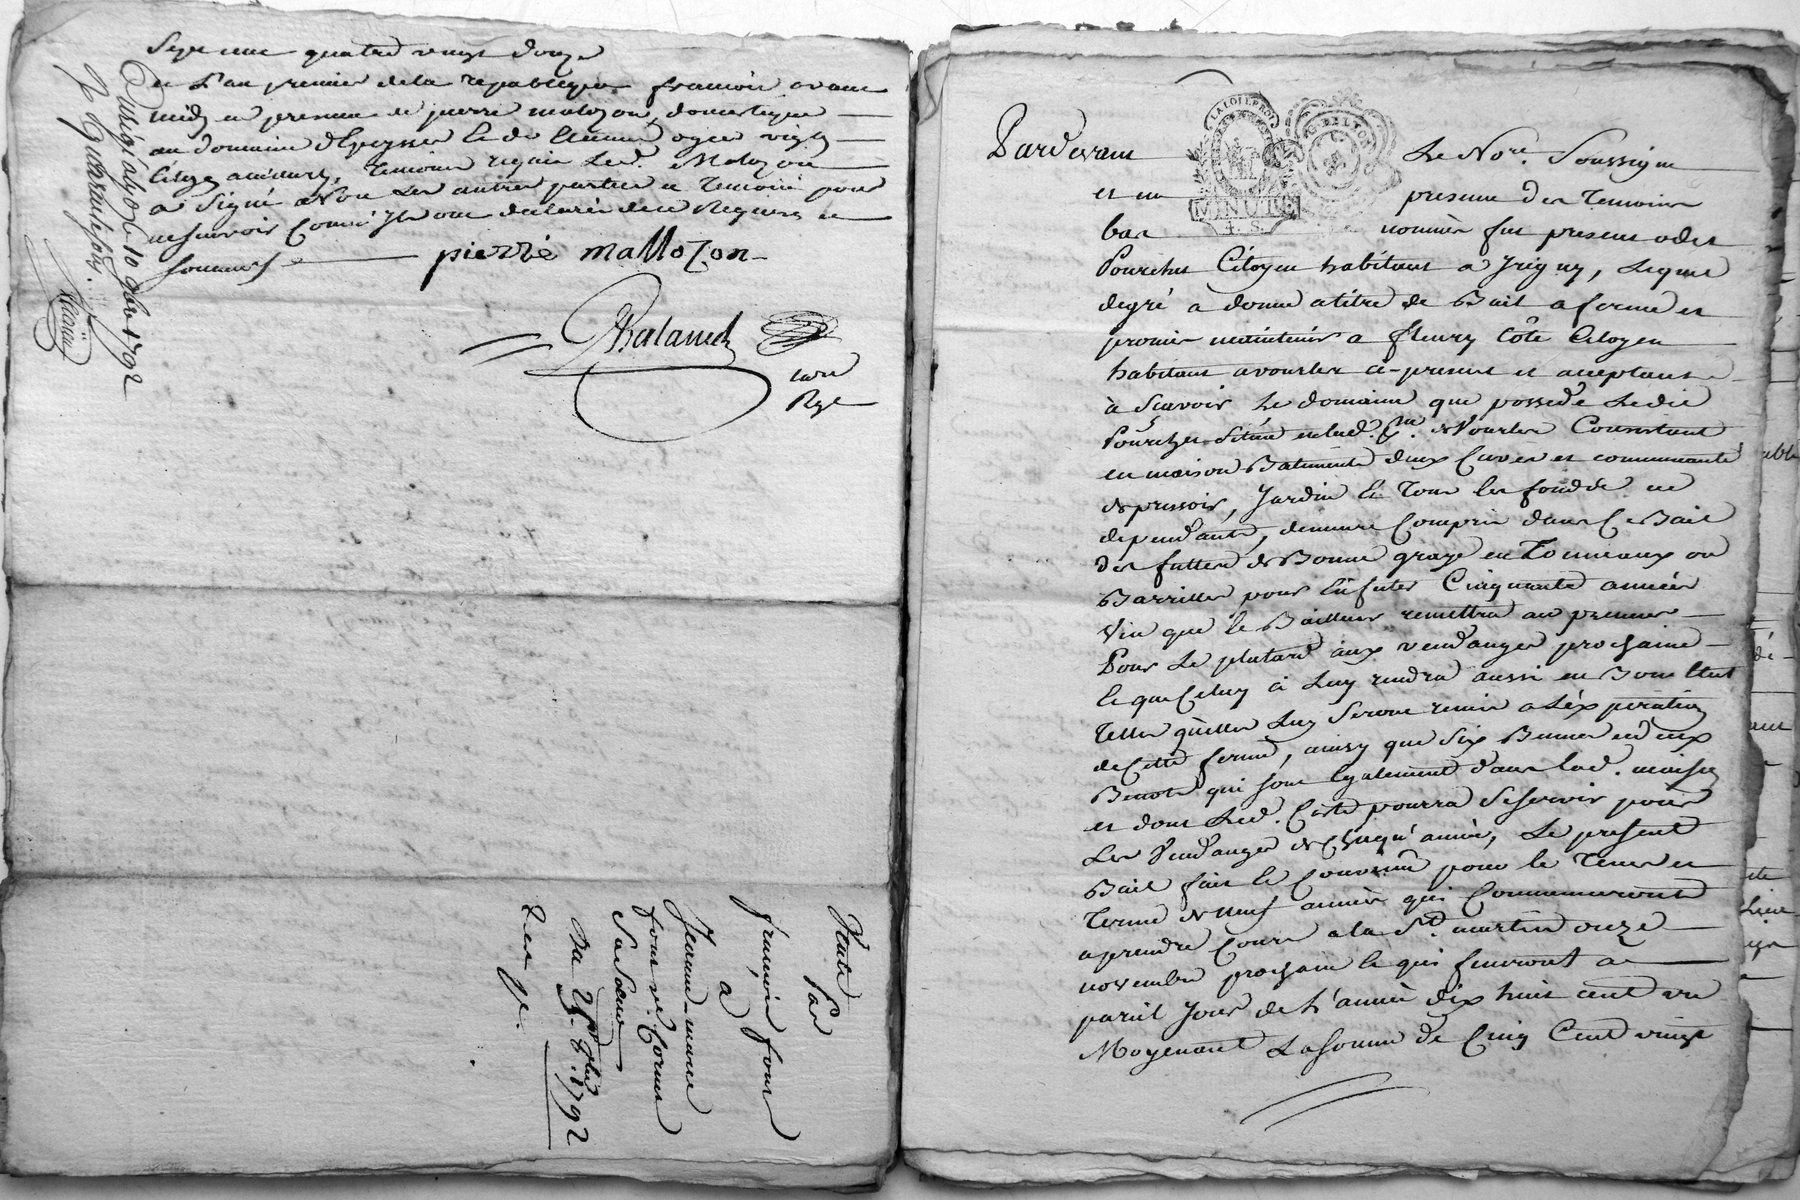 Sept cent quatre vingt douze
et L'an premier de la republique francoise avant
midy en presence de pierre malozon, domestique
au domaine
temoins requis Led. Malozon
a Signé & Non Les autres parties et temoins pour
ne scavoir Comme ils ont declaré de ce Requis et
Sommés
pierre mallozon
Enregistré a le 10 9bre 1792
R. quarante sols.
Vente
Par
francois four
a
Jeanne marie
four ve. Cornu
Sa Sœur
du 25. 8bre. 1792
LA LOI LE ROI
MINUTE
4. S.
Pardevant Le Nore. Soussigné
et en presence des temoins
bas nommés fut present odet
Pourchet Citoyen habitant a Irigny, Lequel
degré a donné a titre de Bail a ferme et
promis maintenir a fleury Côte Citoyen
habitant a vourles ci-present et acceptant
à Scavoir Le domaine que possede Ledit
Pourchet Situé en lad. Cne. de Vourles Consistant
en maison Batiments deux Cuves et communauté
de pressoir, Jardin & Tous les fonds en
dependants, demeure Compris dans Ce Bail
des futtes de Bonne graze en Tonneaux ou
Barrilles pour Enfuter Cinquante années
Vin que le Bailleur remettra au preneur
Pour Le plutard aux vendanges prochaines
le que Celuy ci Luy rendra aussi en Bon Etat
Telles qu'elles Luy Seront remis a L'expiration
de Cette ferme, ainsy que Six Bennes et deux
Bennots qui sont Egalement dans lad. maison
et dont Led. Côte pourra Se servir pour
Les Vendanges de Chaqu'année, Le present
Bail fait & Convenu pour le Tems et
Terme de neuf années qui Commenceront
a prendre Cours a la St. martin onze
novembre prochain & qui finiront a
pareil Jour de L'année dix huit cent un
Moyenant La Somme de Cinq Cent vingt